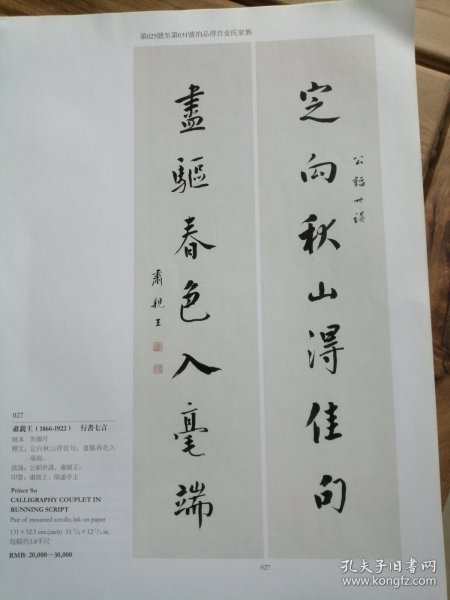 第025號至第031號拍品得自金氏家族
定向秋山得佳句
公韜世講
盡驅春色入毫端
肅親王
027
肅親王（1866-1922） 行書七言
紙本 對鏡片
釋文：定向秋山得佳句，盡驅春色入
毫端。
款識：公韜世講，肅親王。
印鑒：肅親王、偶遂亭主
Prince Su
CALLIGRAPHY COUPLET IN
RUNNING SCRIPT
Pair of mounted scrolls; ink on paper
131×32.5 cm.(each) 51 5/8×12 3/4 in.
每幅約3.8平尺
RMB: 20,000—30,000
027
孔夫子旧书网
book.kongfz.com